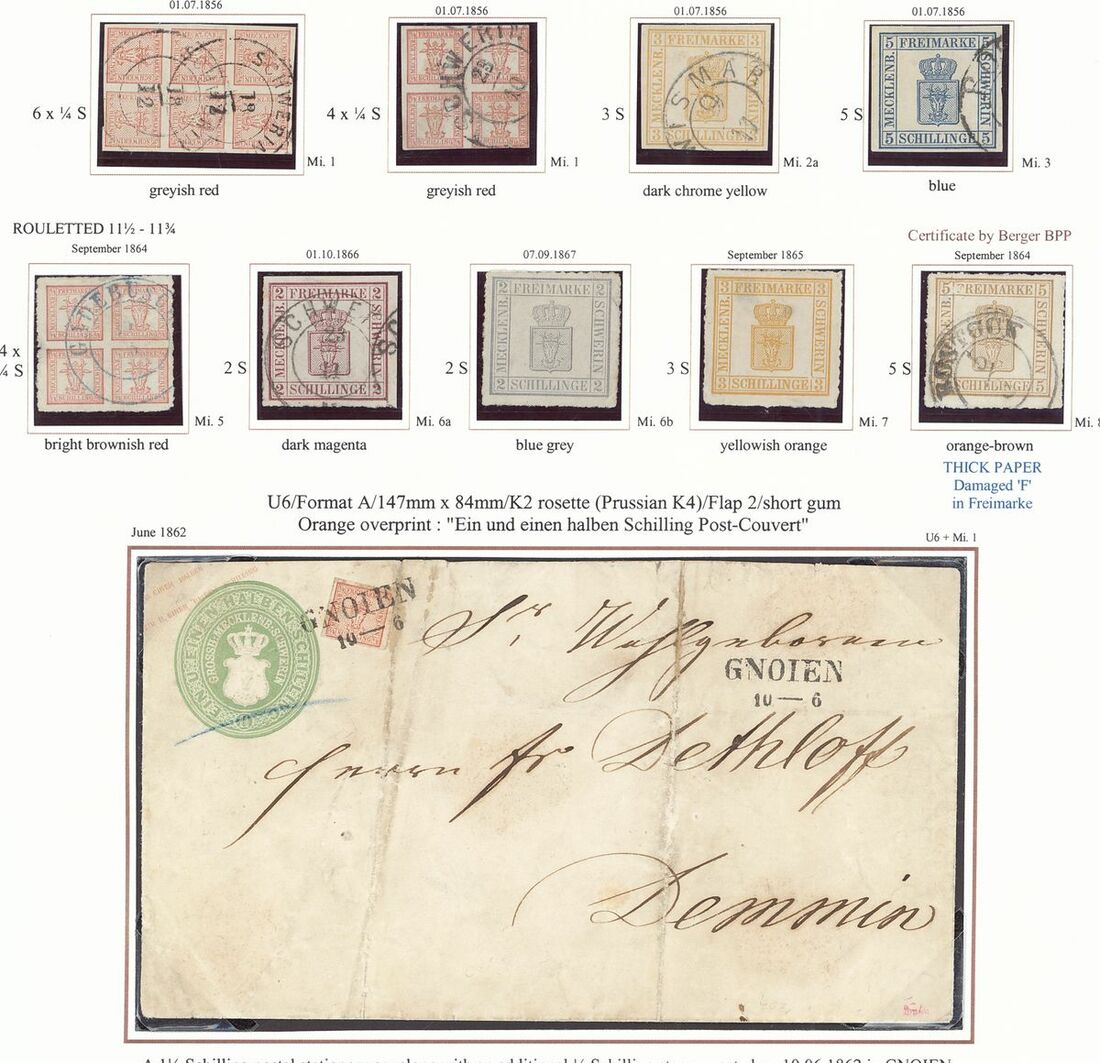 01.07.1856
01.07.1856
01.07.1856
01.07.1856
6 x ¼ S
SCHWERIN
Mi. 1
4 x ¼ S
SCHWERIN
23
Mi. 1
3 S
3 FREIMARKE 3
MECKLENB.
SCHWERIN
3 SCHILLINGE 3
WISMAR
Mi. 2a
5 S
5 FREIMARKE 5
MECKLENB.
SCHWERIN
5 SCHILLINGE 5
Mi. 3
greyish red
greyish red
dark chrome yellow
blue
ROULETTED 11½ - 11¾
Certificate by Berger BPP
September 1864
01.10.1866
07.09.1867
September 1865
September 1864
4 x
¼ S
GADEBUSCH
Mi. 5
2 S
2 FREIMARKE 2
MECKLENB.
SCHWERIN
2 SCHILLINGE 2
Mi. 6a
2 S
2 FREIMARKE 2
MECKLENB.
SCHWERIN
2 SCHILLINGE 2
Mi. 6b
3 S
3 FREIMARKE 3
MECKLENB.
SCHWERIN
3 SCHILLINGE 3
Mi. 7
5 S
5 FREIMARKE 5
SCHWERIN
SCHILLINGE 5
ROSTOCK
Mi. 8
bright brownish red
dark magenta
blue grey
yellowish orange
orange-brown
THICK PAPER
Damaged 'F'
in Freimarke
U6/Format A/147mm x 84mm/K2 rosette (Prussian K4)/Flap 2/short gum
Orange overprint : "Ein und einen halben Schilling Post-Couvert"
June 1862
U6 + Mi. 1
EIN U. EINEN HALBEN SCHILLING
GROSSH. MECKLENB. SCHWERIN
GNOIEN
10 — 6
Sr. Wohlgeboren
GNOIEN
10 — 6
Herrn Fr Dethloff
Demmin